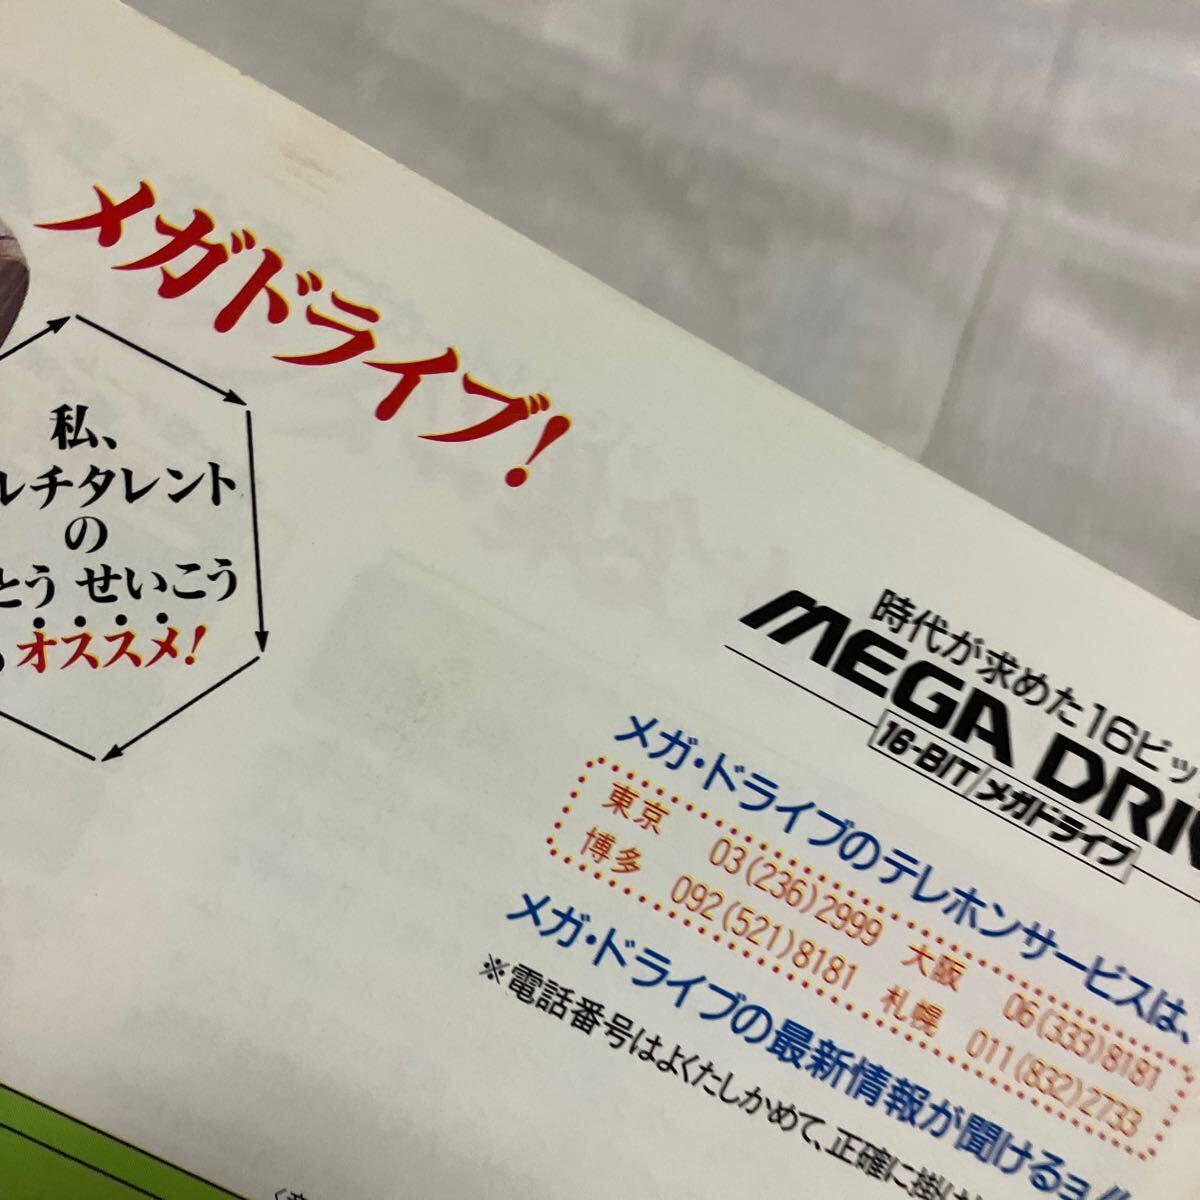 メガドライブ!
私、
ルチタレントの
とう せいこう
オススメ!
時代が求めた16ビッ
MEGA DRIV
16-BIT/メガドライブ
メガ・ドライブのテレホンサービスは、
東京 03(236)2999 大阪 06(333)8181
博多 092(521)8181 札幌 011(832)2733
メガ・ドライブの最新情報が聞けるョ
※電話番号はよくたしかめて、正確に掛け